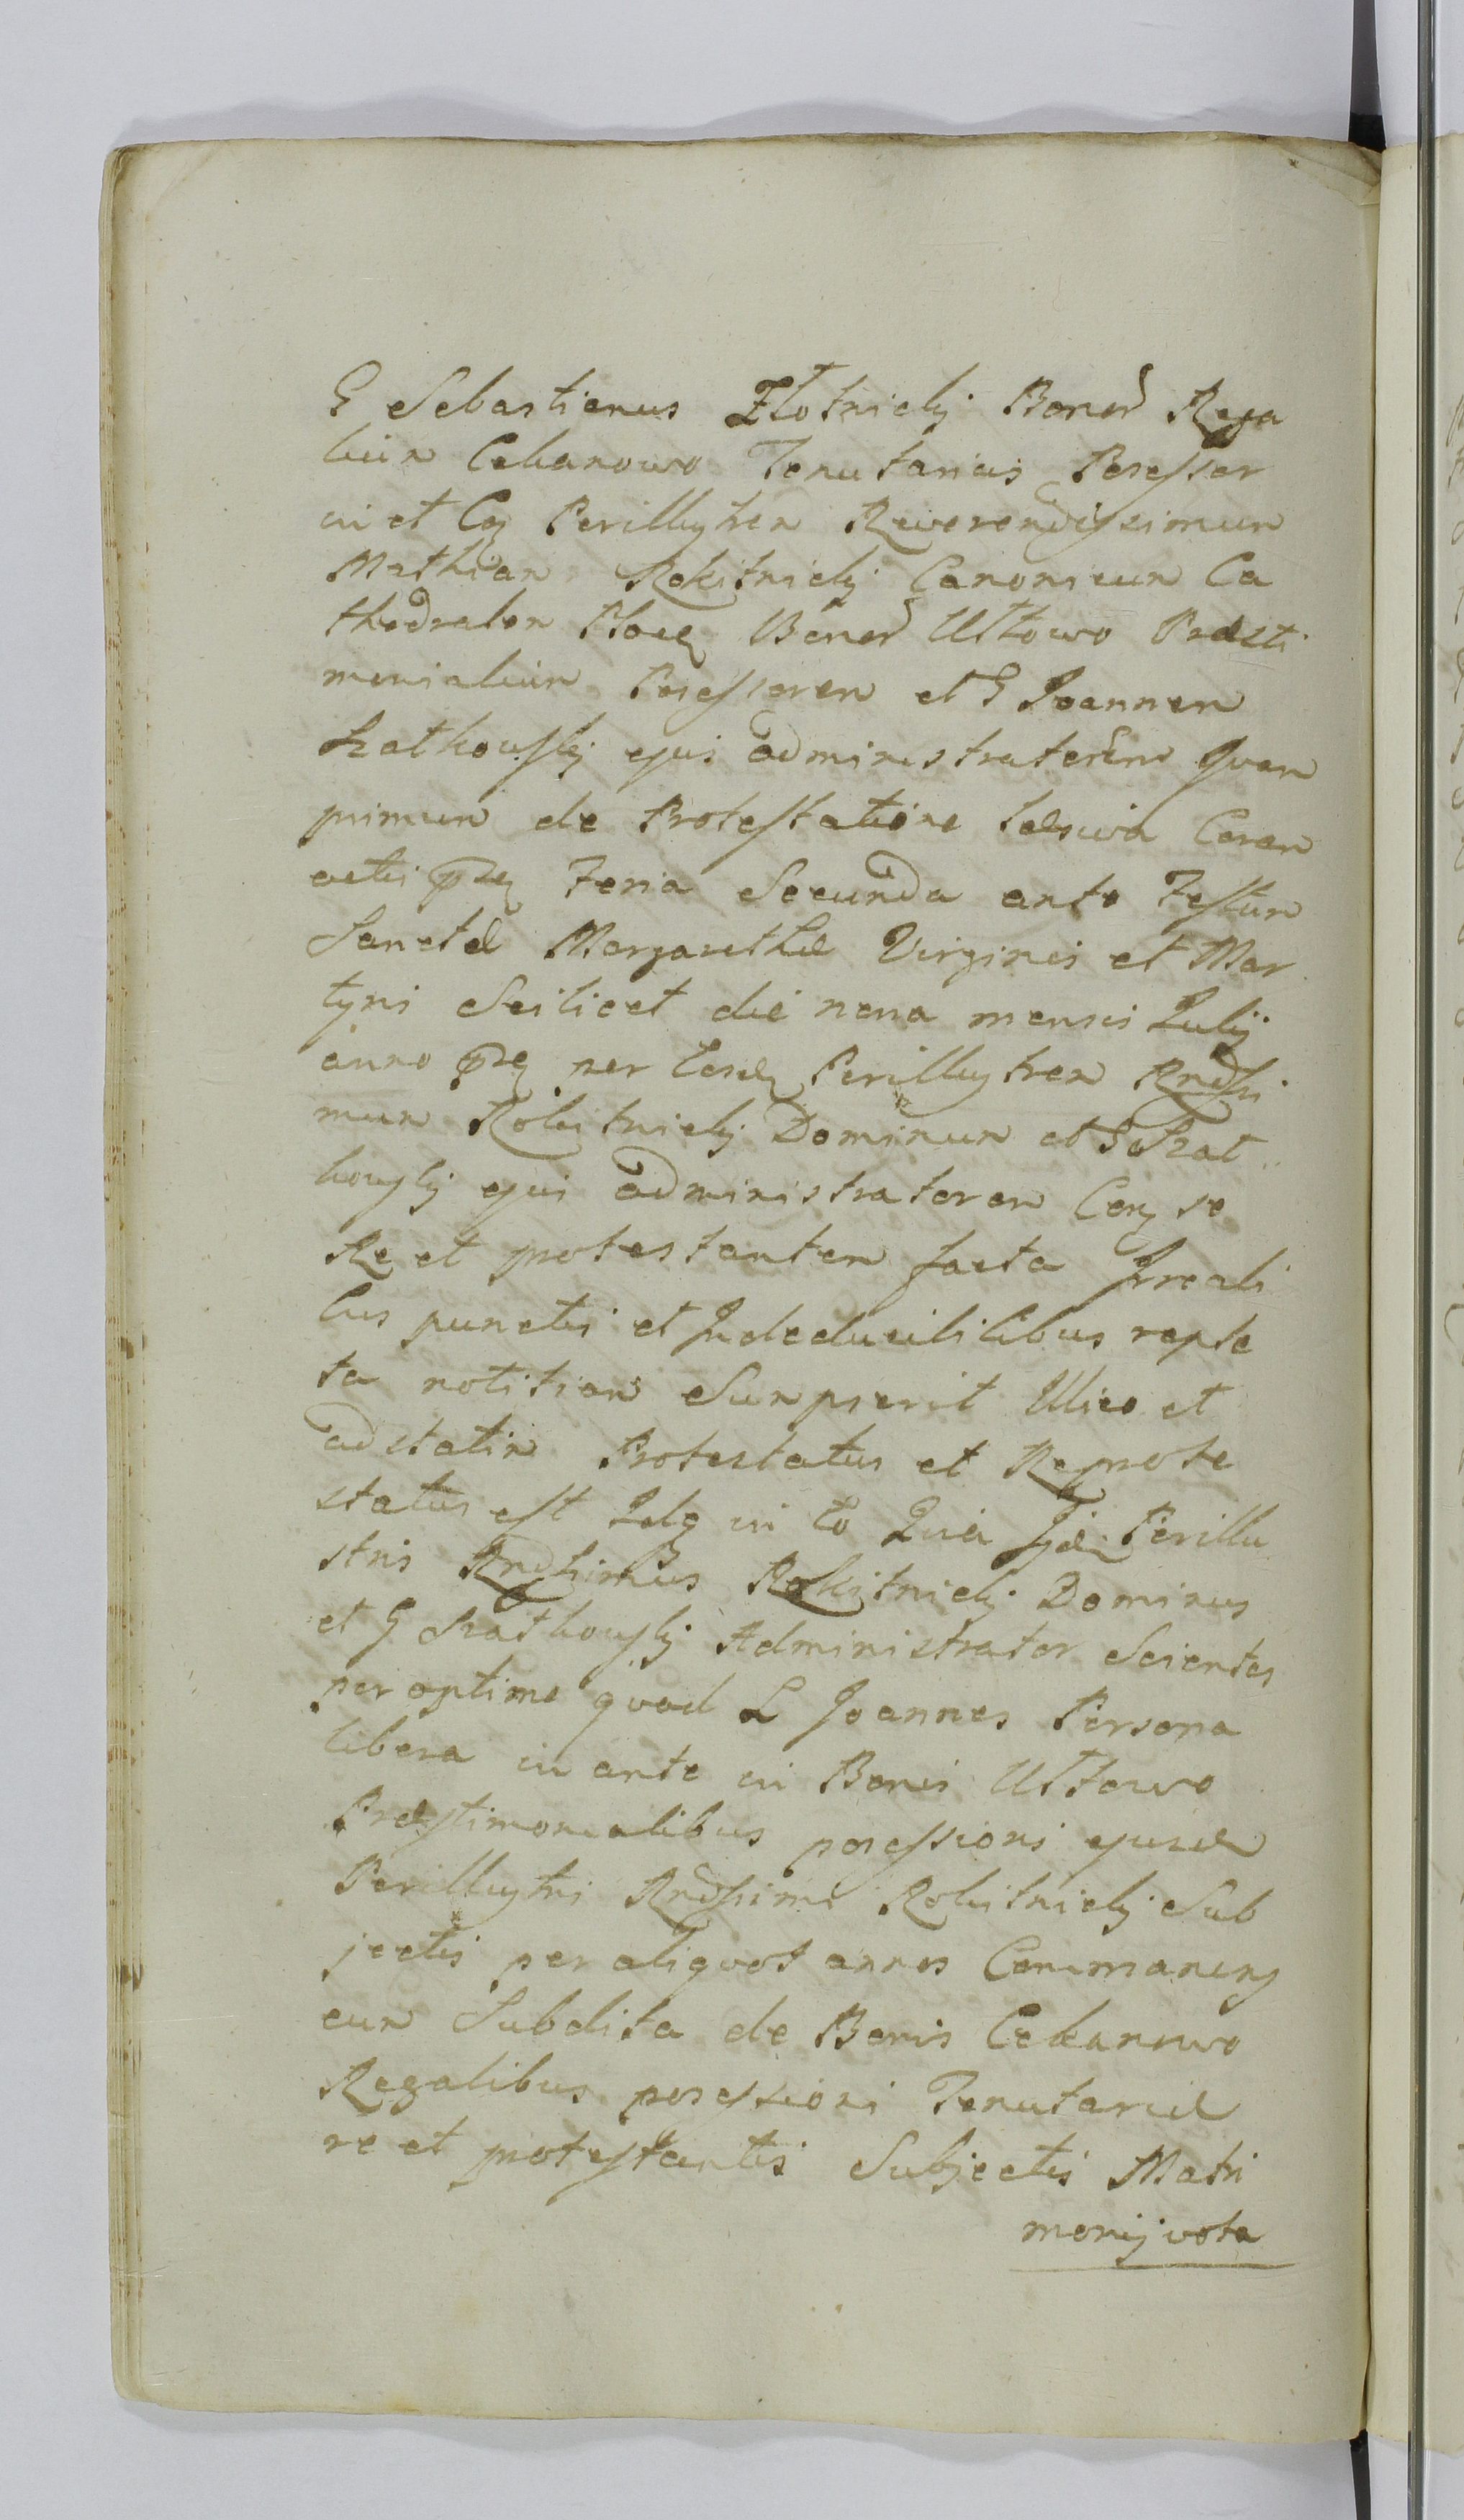 G Sebastianus Złotnicky Bonor Rega
lium Cekanowo Tenutarius Posessor
in et Cq Perillustrem Reverendissimum
Mathiam Rokitnicky Canonicum Ca
thedralem Ploc Bonor Ułtowo Præsti
monialium Posessorem et G Joannem
Szatkowsky ejus administratorem Quam
primum de Protestatione Coram
actis Feria Secunda ante Festum
Sanctæ Margarethæ Virginis et Mar
tyris Scilicet die nona mensis Julij
anno per Perillustrem Rndssi
mum Rokitnicky Dominum et G Szat
kowsky ejus administratorem se
Re et protestantem facta Irreali
bus punctis et Indeducibilibus reple
ta notitiam Sumpserit Illico et
adstatim Protestatus et Reprote
status est Idq in eo Quia Perillu
stris Rndssimus Rokitnicky Dominus
et G Szatkowsky Administrator Scientes
peroptime quod L Joannes Persona
libera in ante in Bonis Ułtowo
Præstimonialibus posessioni ejusd
Perillustri Rndssimi Rokitnicky Sub
jectis per aliquot annos Commanens
cum Subdita de Bonis Cekanowo
Regalibus posessioni Tenutariæ
re et protestantis Subjectis Matri
monij vota